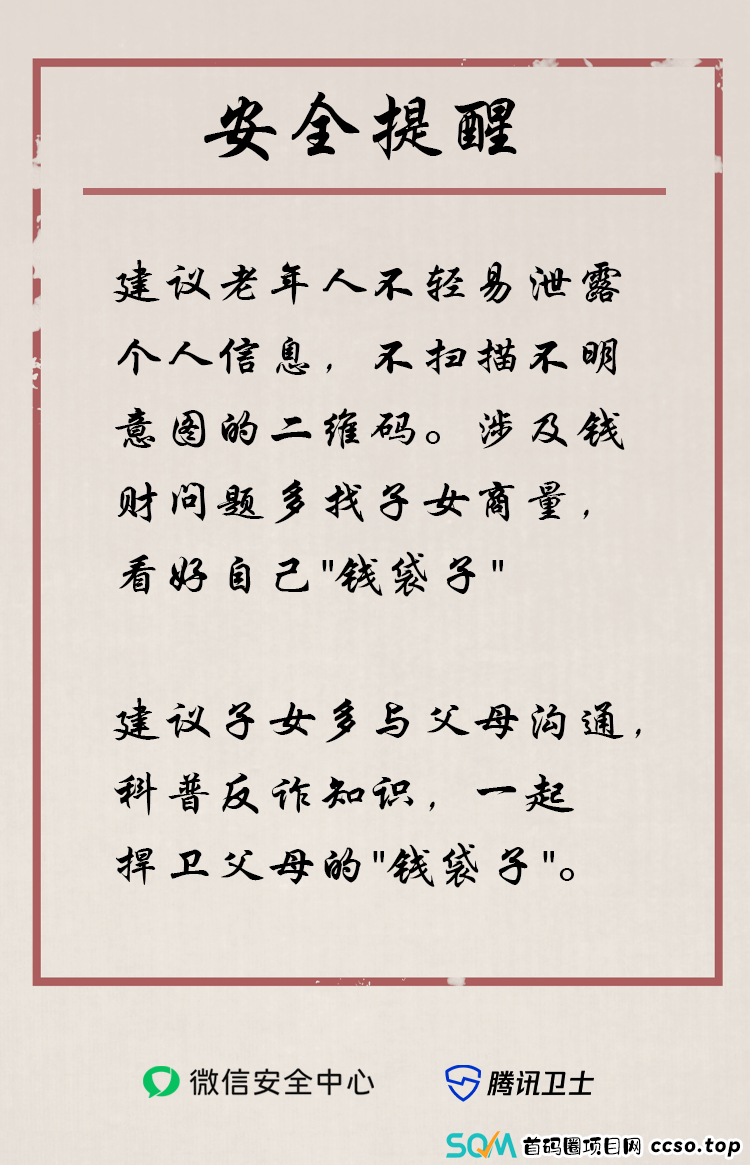 安全提醒
建议老年人不轻易泄露
个人信息，不扫描不明
意图的二维码。涉及钱
财问题多找子女商量，
看好自己"钱袋子"
建议子女多与父母沟通，
科普反诈知识，一起
捍卫父母的"钱袋子"。
微信安全中心 腾讯卫士
SQM 首码圈项目网 ccso.top